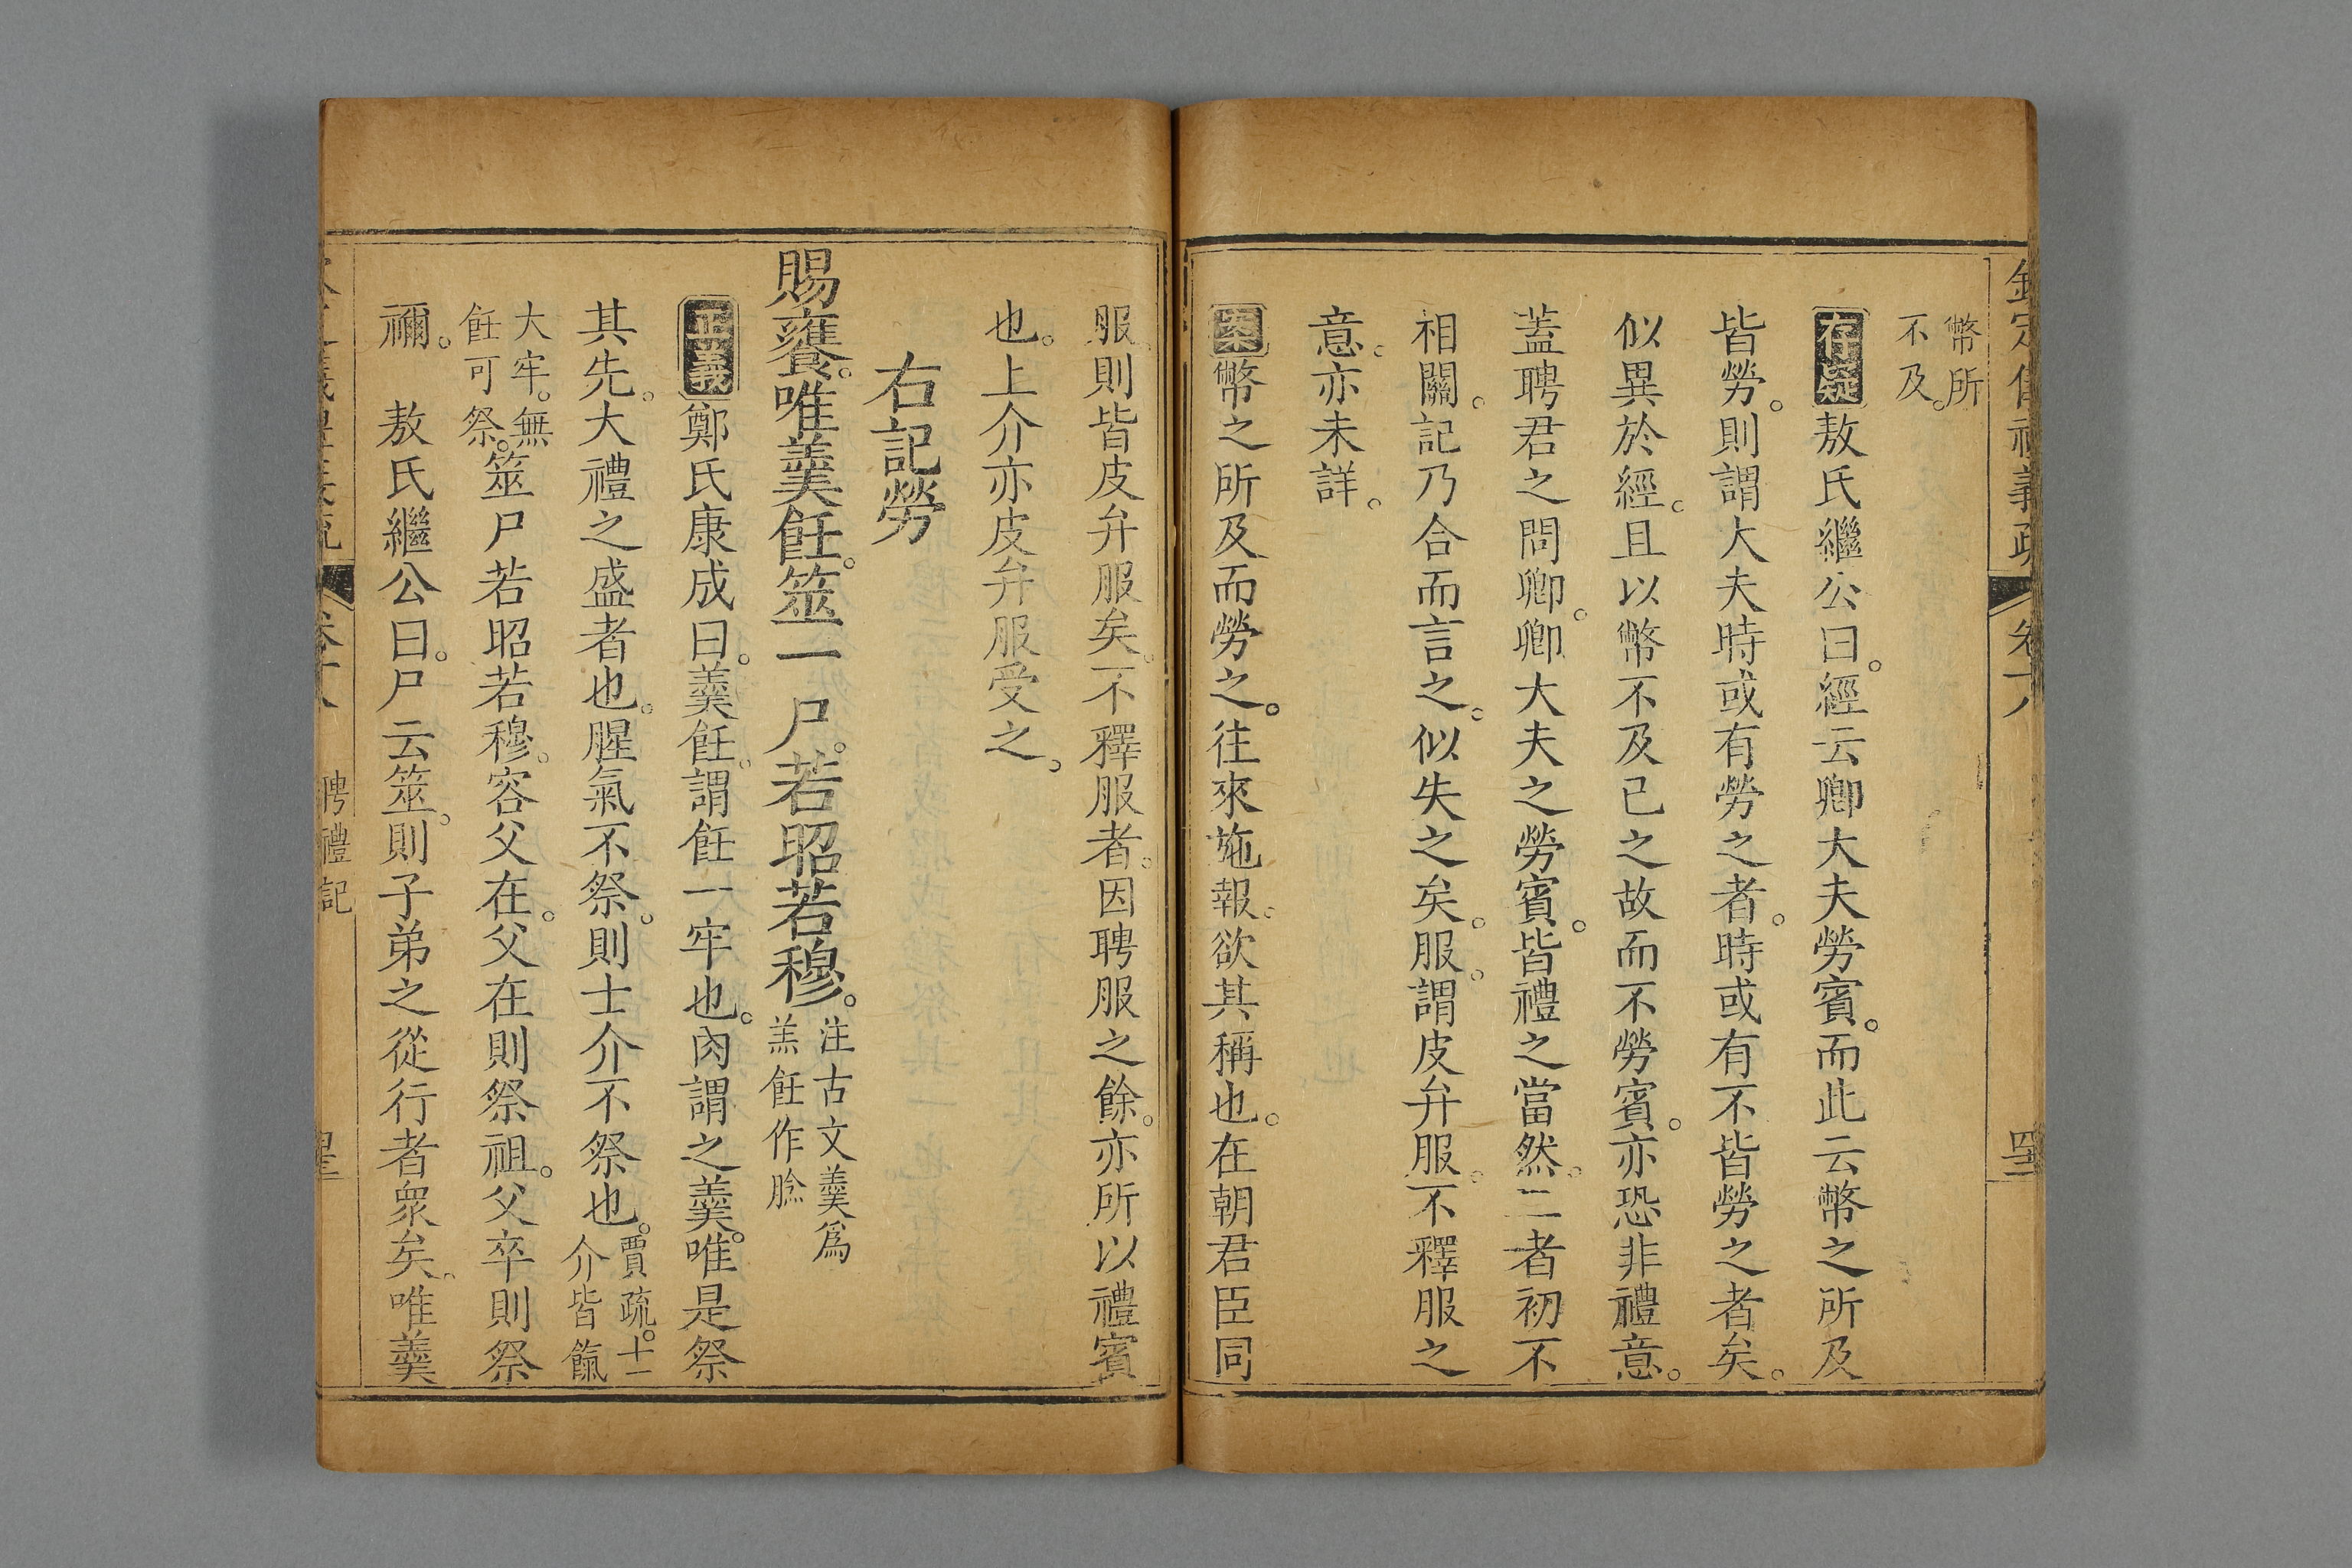 幣所
不及。
存疑敖氏繼公曰。經云卿大夫勞賓。而此云幣之所及
皆勞。則謂大夫時或有勞之者。時或有不皆勞之者矣。
似異於經。且以幣不及己之故而不勞賓。亦恐非禮意。
蓋聘君之問卿。卿大夫之勞賓。皆禮之當然。二者初不
相關。記乃合而言之。似失之矣。服。謂皮弁服。不釋服之
意。亦未詳。
案幣之所及而勞之。往來施報。欲其稱也。在朝君臣同
服。則皆皮弁服矣。不釋服者。因聘服之餘。亦所以禮賓
也。上介亦皮弁服受之。
右記勞
賜饔。唯羹飪。筮一尸。若昭若穆。注古文羹爲
羔飪作腍
正義鄭氏康成曰。羹飪。謂飪一牢也。肉謂之羹。唯是祭
其先。大禮之盛者也。腥氣不祭。則士介不祭也。賈疏。士
介皆餼
大牢。無
飪可祭。筮尸若昭若穆。容父在。父在則祭祖。父卒則祭
禰。 敖氏繼公曰。尸云筮。則子弟之從行者衆矣。唯羹
聘禮記